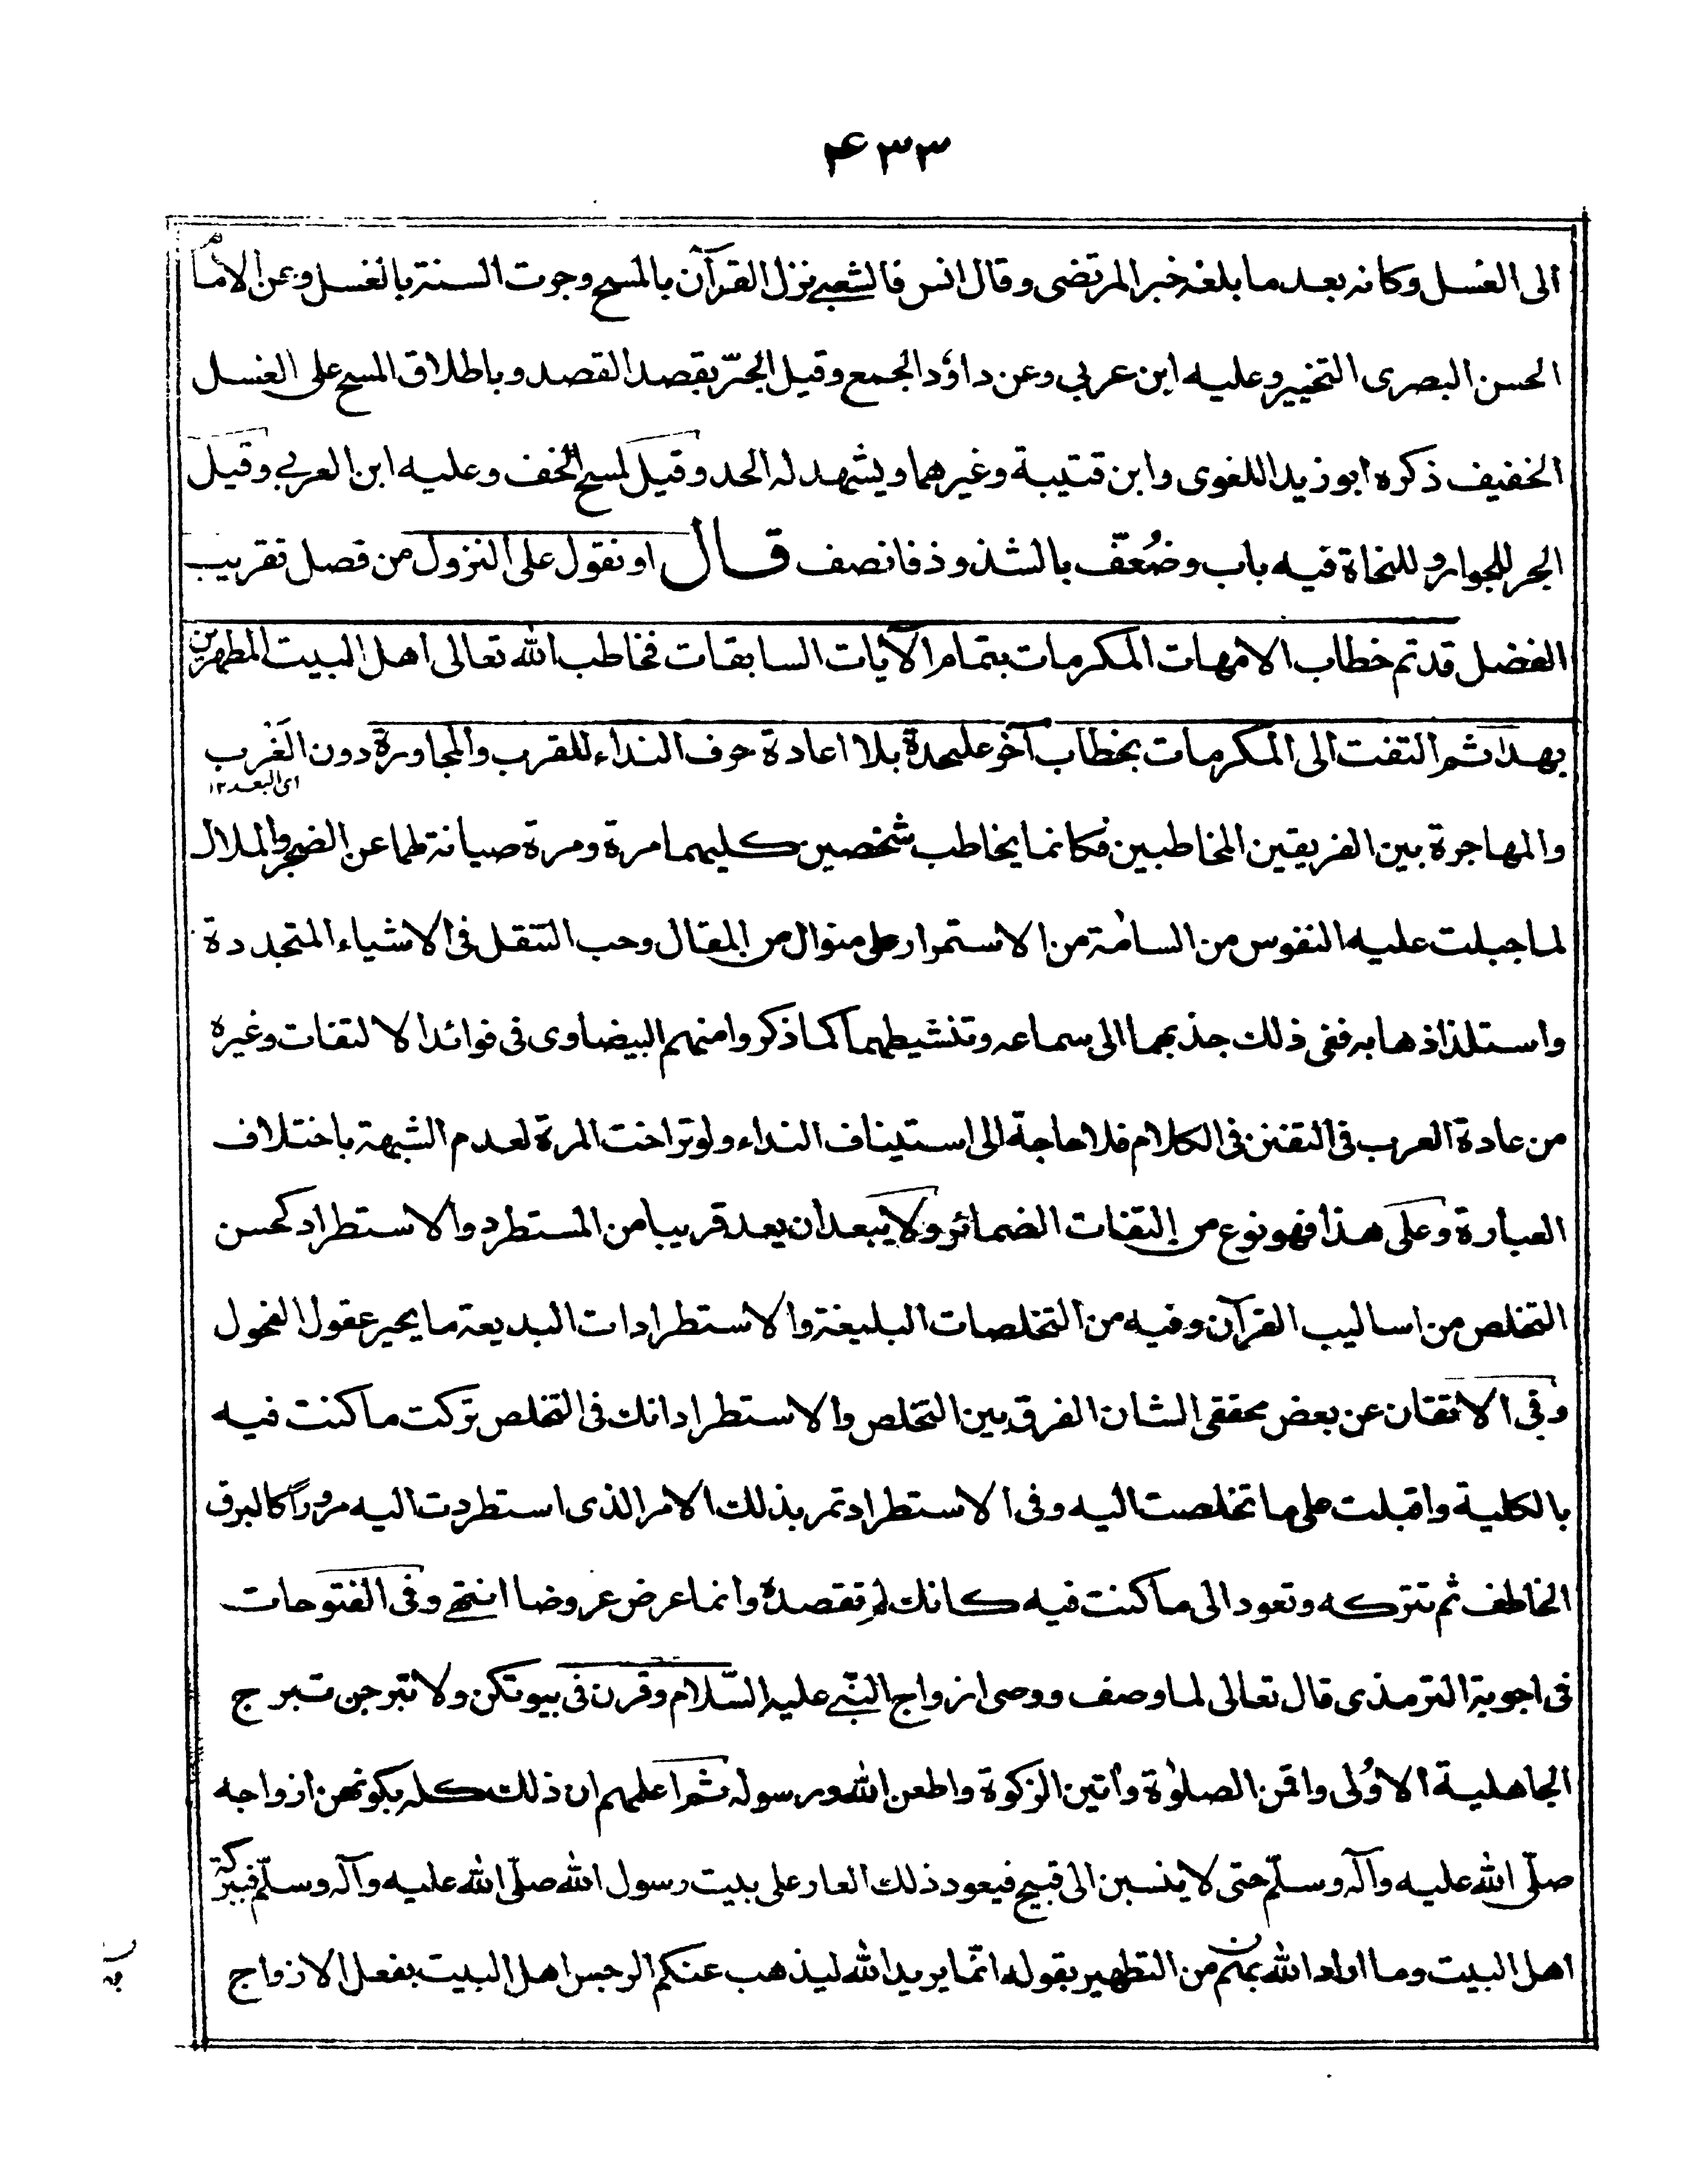 ۴۳۳
الى الغسل وكانه بعد ما بلغه خبر المرتضى وقال انس فالشعبي نزل القرآن بالمسح وجرت السنة بالغسل وعن الامام
الحسن البصرى التخيير وعليه ابن عربي وعن داؤد الجمع وقيل الجرّ بقصد القصد وباطلاق المسح على الغسل
الخفيف ذكره ابو زيد اللغوى وابن قتيبة وغيرهما ويشهد له الحد وقيل لمسح الخف وعليه ابن العربي وقيل
الجر للجوار وللنحاة فيه باب وضُعّف بالشذوذ فانصف قال او نقول على النزول من فصل تقريب
الفضل قد تم خطاب الامهات المكرمات بتمام الآيات السابقات فخاطب الله تعالى اهل البيت المطهرين
بهذا ثم التفت الى المكرمات بخطاب آخر عليحدة بلا اعادة حرف النداء للقرب والمجاورة دون الغَرْب
اى البعد ۱۲
والمهاجرة بين الفريقين المخاطبين فكانما يخاطب شخصين كليهما مرة ومرة صيانة لهما عن الضجر والملال
لما جبلت عليه النفوس من السامة من الاستمرار على منوال من المقال وحب التنقل فى الاشياء المتجددة
واستلذاذها به ففى ذلك جذبهما الى سماعه وتنشيطهما كما ذكروا منهم البيضاوى فى فوائد الالتفات وغيره
من عادة العرب فى التفنن فى الكلام فلا حاجة الى استيناف النداء ولو تراخت المرة لعدم الشبهة باختلاف
العبارة وعلى هذا فهو نوع من التفات الضمائر ولا يبعد ان يعد قريبا من المستطرد والاستطراد كحسن
التخلص من اساليب القرآن وفيه من التخلصات البليغة والاستطرادات البديعة ما يحير عقول الفحول
وفى الاتقان عن بعض محققى الشان الفرق بين التخلص والاستطراد انك فى التخلص تركت ما كنت فيه
بالكلية واقبلت على ما تخلصت اليه وفى الاستطراد تمر بذلك الامر الذى استطردت اليه مروراً كالبرق
الخاطف ثم تتركه وتعود الى ما كنت فيه كانك لم تقصده وانما عرض عروضا انتهى وفى الفتوحات
فى اجوبة الترمذى قال تعالى لما وصف ووصى ازواج النبي عليه السّلام وقرن فى بيوتكن ولا تبرجن تبرج
الجاهلية الاوُلى واقمن الصلوٰة وأتين الزكوة واطعن الله ورسوله ثم اعلمهم ان ذلك كله بكونهن ازواجه
صلّى الله عليه وآله وسلّم حتى لا ينسبن الى قبيح فيعود ذلك العار على بيت رسول الله صلّى الله عليه وآله وسلّم فببركة
اهل البيت وما اراد الله بهم من التطهير بقوله انّما يريد الله ليذهب عنكم الرجس اهل البيت بفعل الازواج